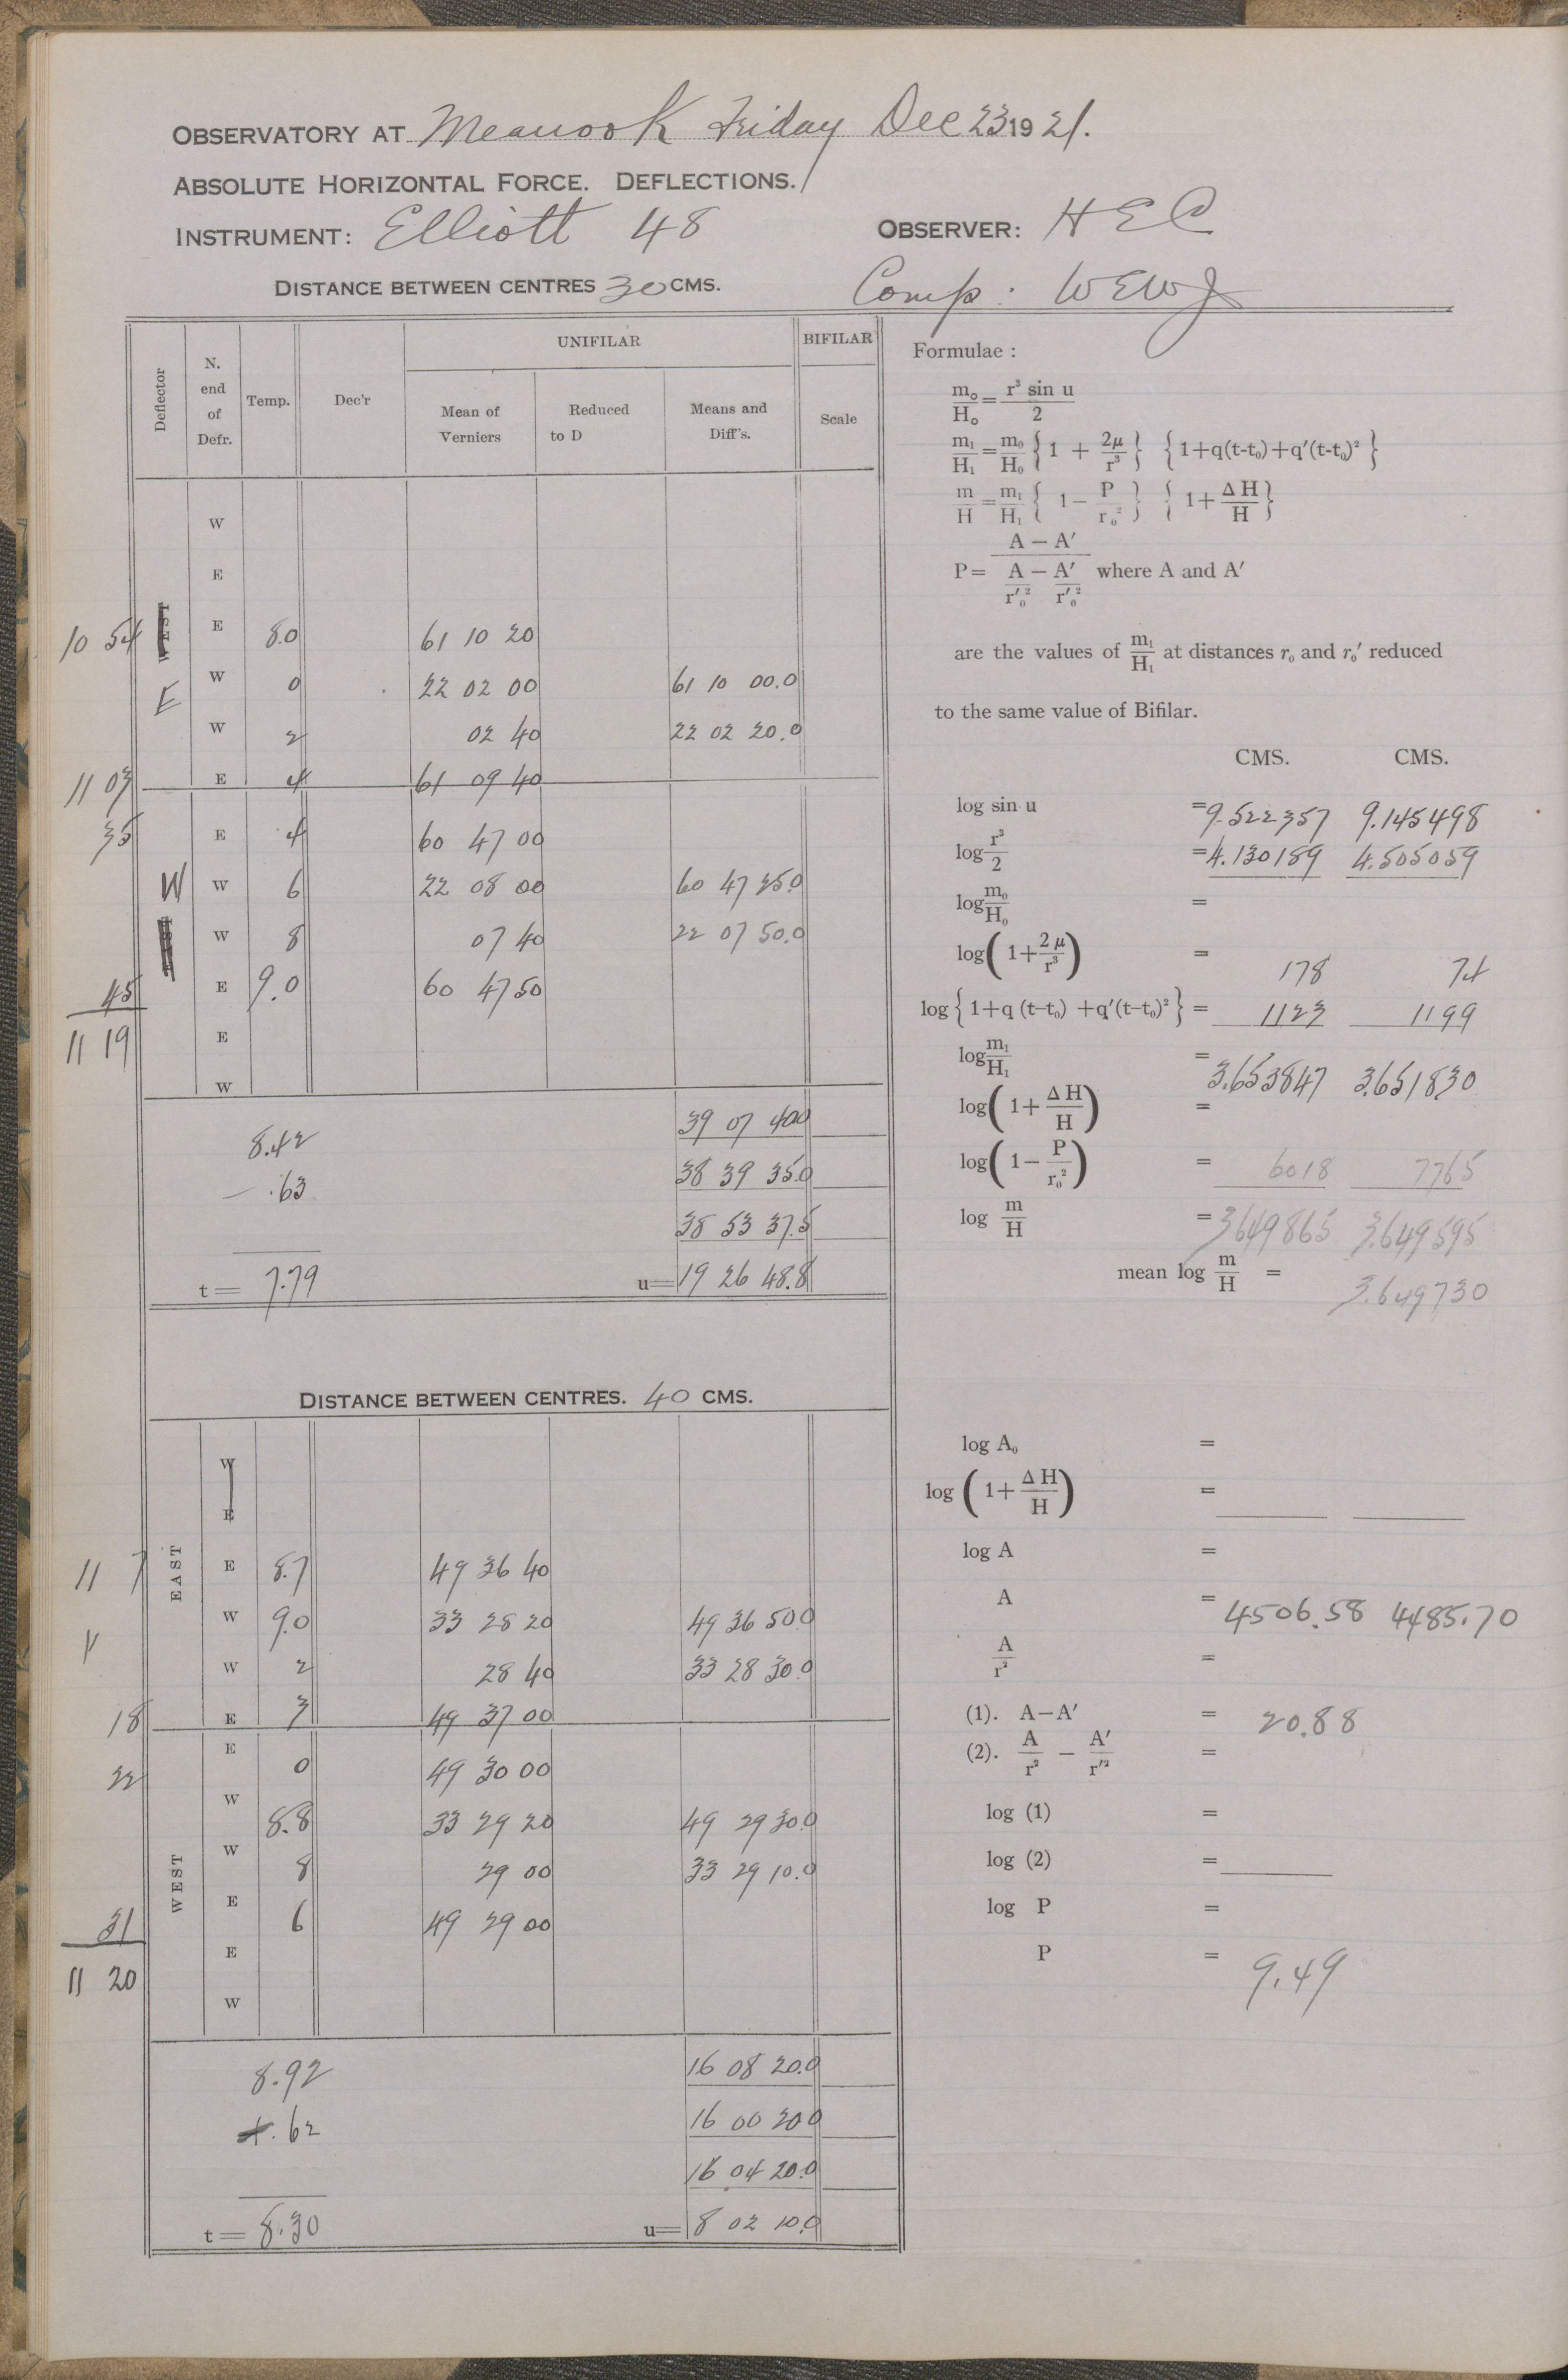 OBSERVATORY AT Meanook Friday Dec 23 1921.
ABSOLUTE HORIZONTAL FORCE. DEFLECTIONS.
INSTRUMENT: Elliott 48 OBSERVER: HEC
DISTANCE BETWEEN CENTRES 30 CMS. Comp: WEWJ
Deflector N. end of Defr. Temp. Dec'r UNIFILAR BIFILAR
Mean of Verniers Reduced to D Means and Diff's. Scale
W
E
10 54 WEST E 8.0 61 10 20
E W 0 22 02 00 61 10 00.0
W 2 02 40 22 02 20.0
11 03 E 4 61 09 40
35 E 4 60 47 00
W W 6 22 08 00 60 47 25.0
W 8 07 40 22 07 50.0
45 E 9.0 60 47 50
11 19 E
W
39 07 40.0
8.42
38 39 35.0
- .63
38 53 37.5
t = 7.79 u = 19 26 48.8
DISTANCE BETWEEN CENTRES. 40 CMS.
W
E
11 7 EAST E 8.7 49 36 40
W 9.0 33 28 20 49 36 50.0
W 2 28 40 33 28 30.0
18 E 3 49 37 00
22 E 0 49 30 00
W 8.8 33 29 20 49 29 30.0
WEST W 8 29 00 33 29 10.0
31 E 6 49 29 00
11 20 E
W
8.92 16 08 20.0
.62 16 00 20.0
16 04 20.0
t = 8.30 u = 8 02 10.0
Formulae :
m₀/H₀ = r³ sin u/2
m₁/H₁ = m₀/H₀ {1 + 2μ/r³} {1+q(t-t₀)+q′(t-t₀)²}
m/H = m₁/H₁ {1 − P/r₀²} {1+ ΔH/H}
P = (A − A′)/(A/r′₀² − A′/r′₀²) where A and A′
are the values of m₁/H₁ at distances r₀ and r₀′ reduced
to the same value of Bifilar.
CMS. CMS.
log sin u = 9.522357 9.145498
log r³/2 = 4.130189 4.505059
log m₀/H₀ =
log (1+ 2μ/r³) = 178 74
log {1+q (t-t₀) +q′(t-t₀)²} = 1123 1199
log m₁/H₁ = 3.653847 3.651830
log (1+ ΔH/H) =
log (1− P/r₀²) = 6018 7765
log m/H = 3649865 3.649595
mean log m/H = 3.649730
log A₀ =
log (1+ ΔH/H) =
log A =
A = 4506.58 4485.70
A/r² =
(1). A−A′ = 20.88
(2). A/r² − A′/r′² =
log (1) =
log (2) =
log P =
P = 9.49